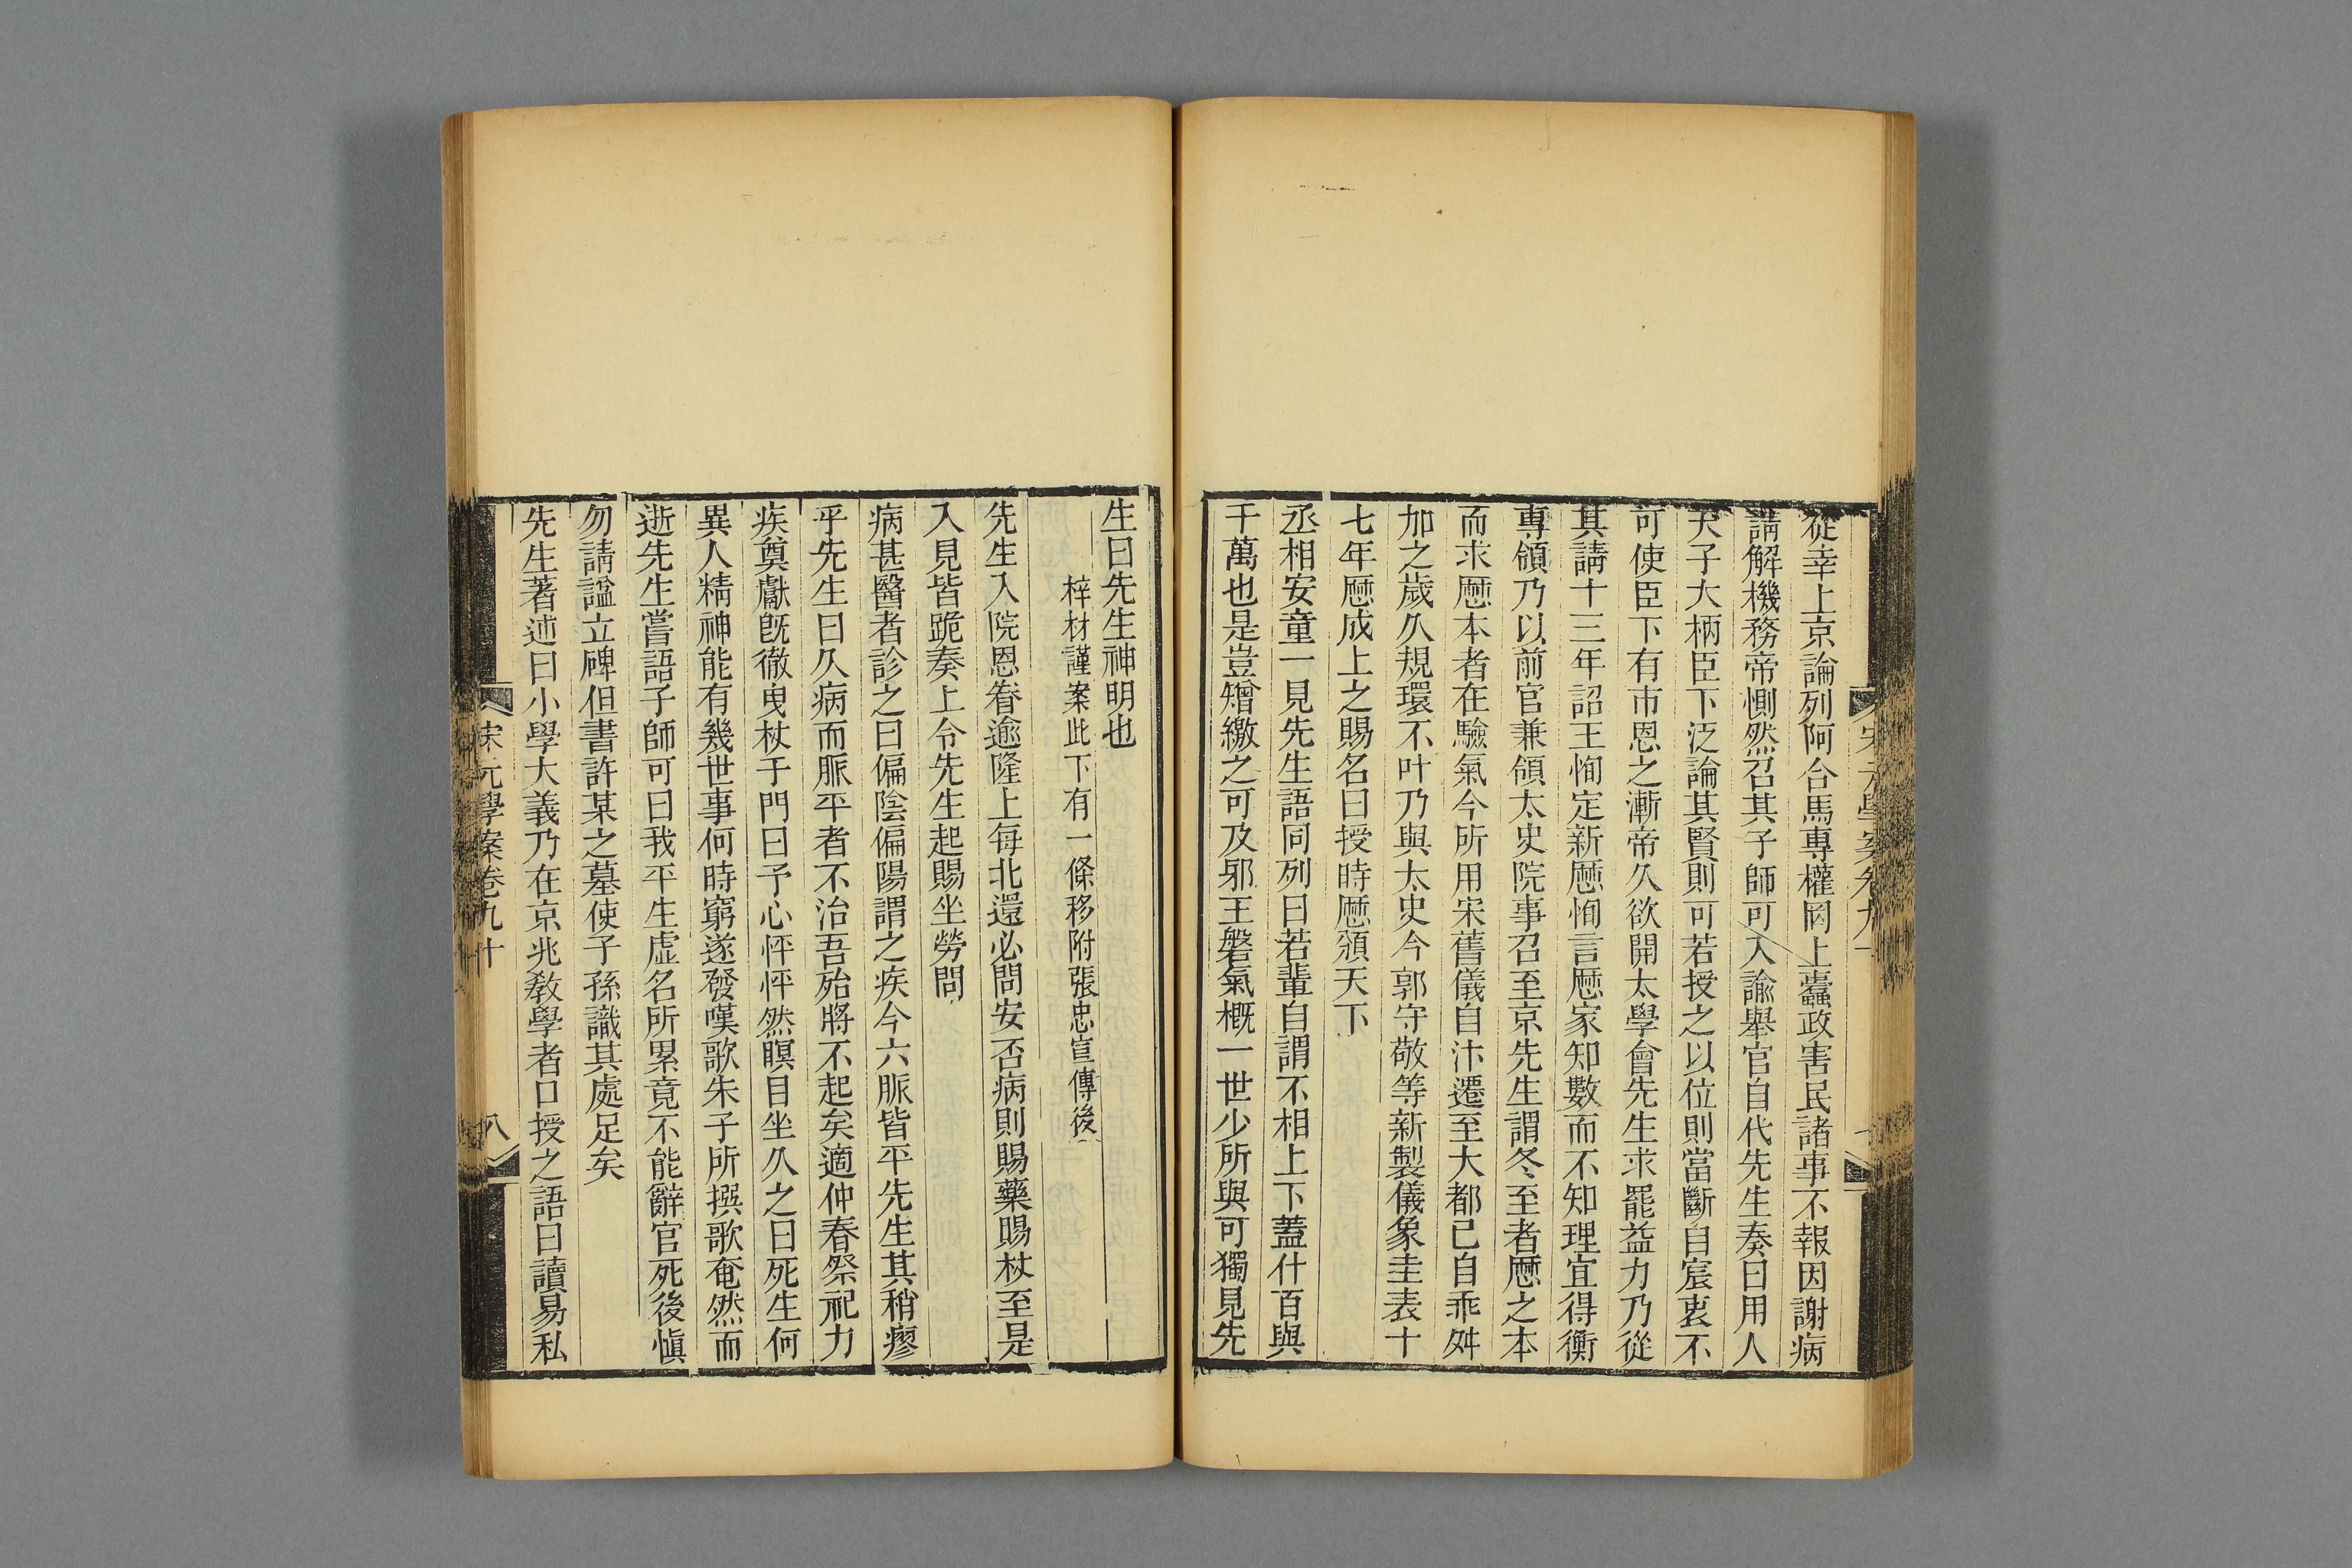 從幸上京論列阿合馬專權罔上蠹政害民諸事不報因謝病
請解機務帝惻然召其子師可入諭舉官自代先生奏曰用人
天子大柄臣下泛論其賢則可若授之以位則當斷自宸衷不
可使臣下有市恩之漸帝久欲開太學會先生求罷益力乃從
其請十三年詔王恂定新厯恂言厯家知數而不知理宜得衡
專領乃以前官兼領太史院事召至京先生謂冬至者厯之本
而求厯本者在驗氣今所用宋舊儀自汴遷至大都已自乖舛
加之歲久規環不叶乃與太史令郭守敬等新製儀象圭表十
七年厯成上之賜名曰授時厯頒天下
丞相安童一見先生語同列曰若輩自謂不相上下蓋什百與
千萬也是豈矰繳之可及邪王磐氣概一世少所與可獨見先
生曰先生神明也
梓材謹案此下有一條移附張忠宣傳後
先生入院恩眷逾隆上每北還必問安否病則賜藥賜杖至是
入見皆跪奏上令先生起賜坐勞問
病甚醫者診之曰偏陰偏陽謂之疾今六脈皆平先生其稍瘳
乎先生曰久病而脈平者不治吾殆將不起矣適仲春祭祀力
疾奠獻旣徹曳杖于門曰予心怦怦然瞑目坐久之曰死生何
異人精神能有幾世事何時窮遂發嘆歌朱子所撰歌奄然而
逝先生嘗語子師可曰我平生虛名所累竟不能辭官死後愼
勿請諡立碑但書許某之墓使子孫識其處足矣
先生著述曰小學大義乃在京兆敎學者口授之語曰讀易私
宋元學案卷九十
八